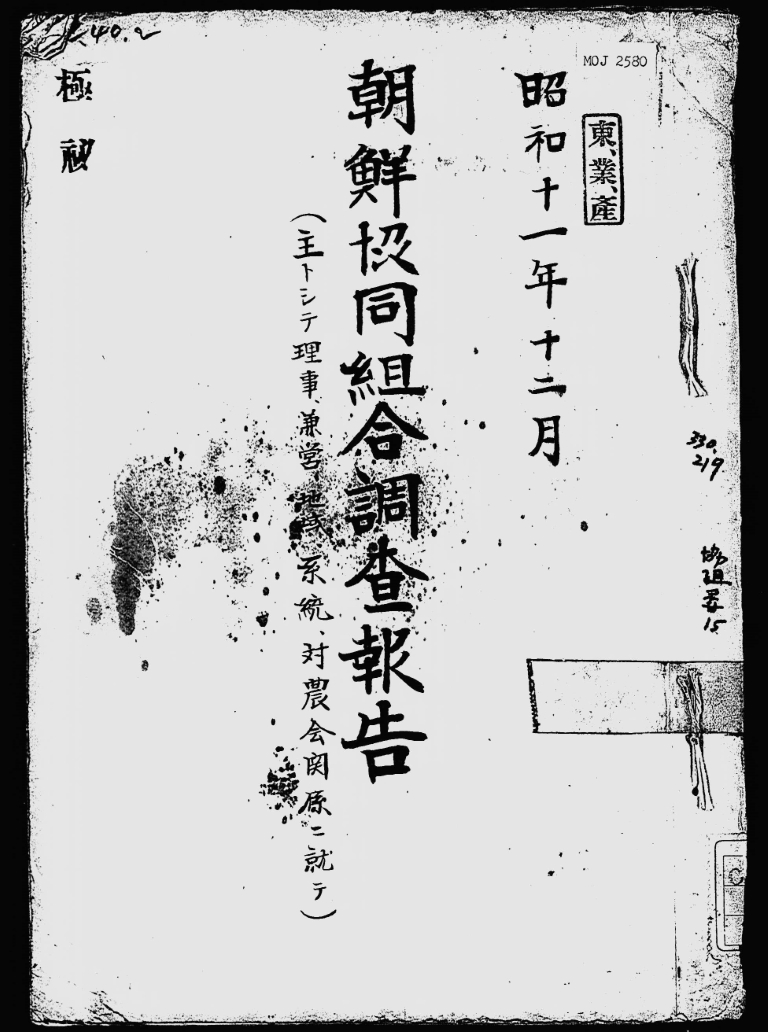 MOJ 2580
東、業、產
昭和十一年十二月
朝鮮協同組合調査報告
(主トシテ理事、兼営、地域、系統、対農会関係ニ就テ)
極秘
40.2
330.
219
協組委15